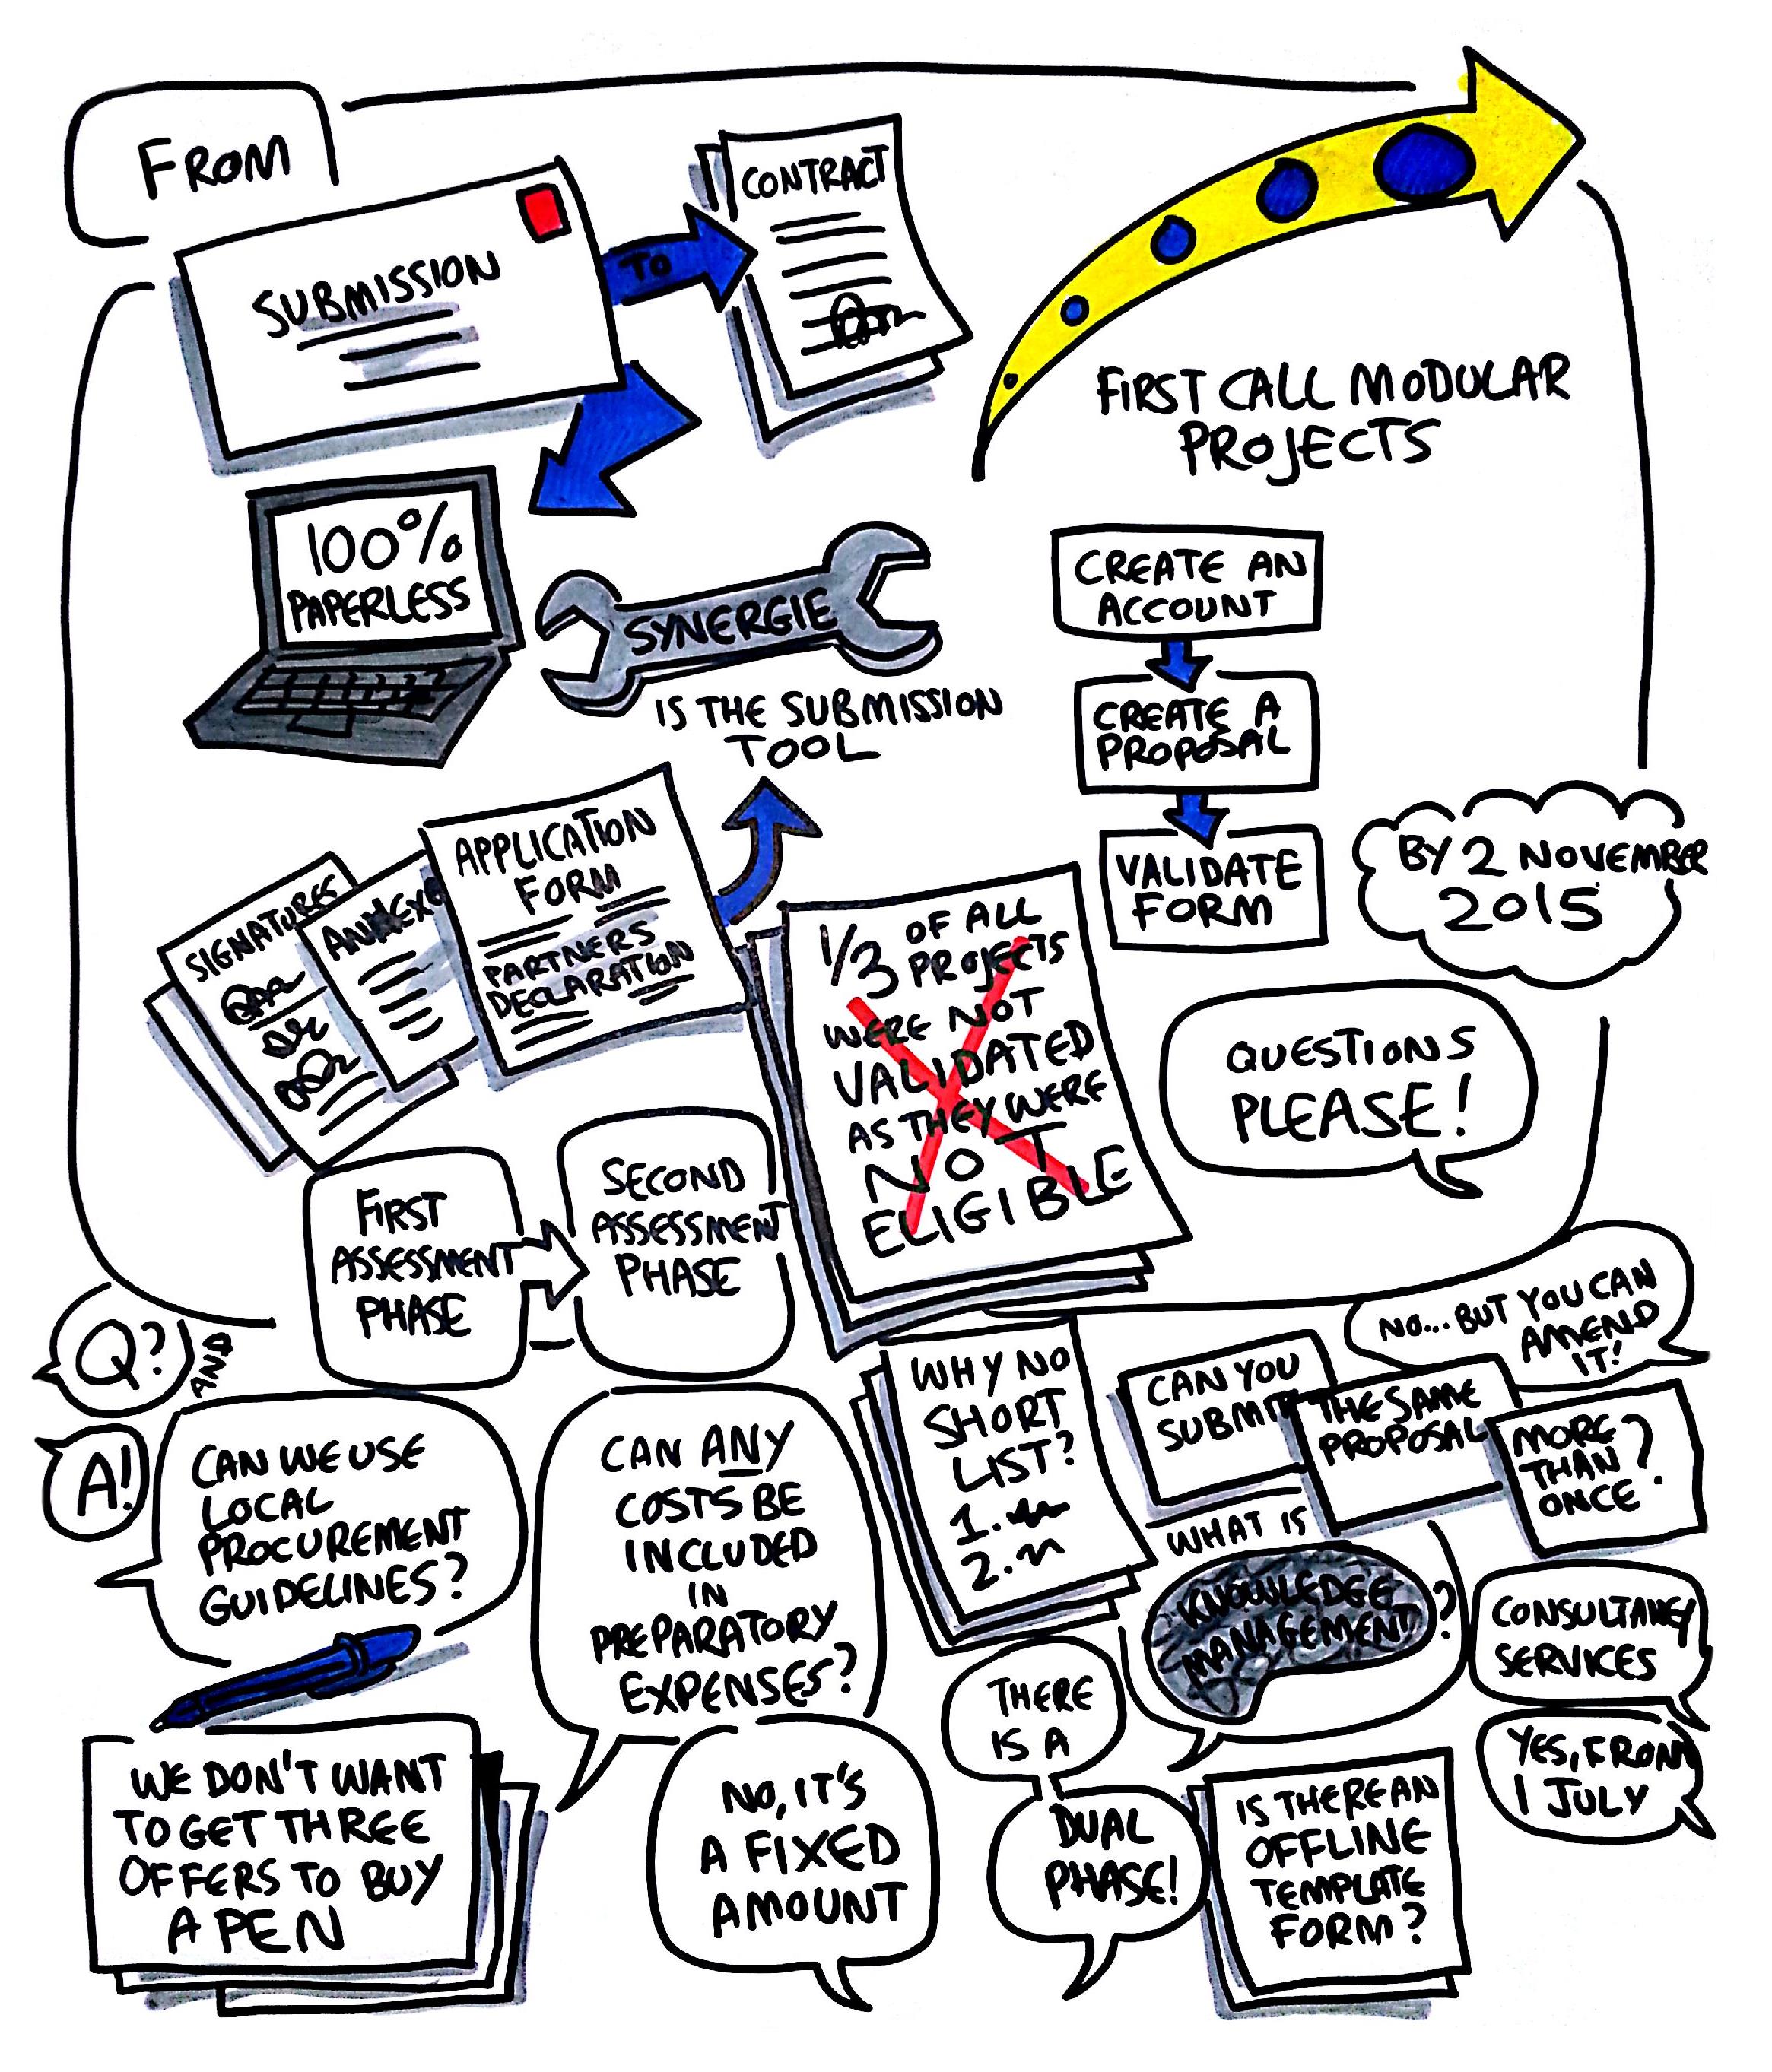 FROM
SUBMISSION
TO
CONTRACT
FIRST CALL MODULAR
PROJECTS
100%
PAPERLESS
SYNERGIE
IS THE SUBMISSION
TOOL
CREATE AN
ACCOUNT
CREATE A
PROPOSAL
VALIDATE
FORM
BY 2 NOVEMBER
2015
SIGNATURES
ANNEXE
APPLICATION
FORM
PARTNERS
DECLARATION
1/3 OF ALL
PROJECTS
WERE NOT
VALIDATED
AS THEY WERE
NOT
ELIGIBLE
QUESTIONS
PLEASE!
FIRST
ASSESSMENT
PHASE
SECOND
ASSESSMENT
PHASE
Q?
AND
A!
CAN WE USE
LOCAL
PROCUREMENT
GUIDELINES?
WE DON'T WANT
TO GET THREE
OFFERS TO BUY
A PEN
CAN ANY
COSTS BE
INCLUDED
IN
PREPARATORY
EXPENSES?
NO, IT'S
A FIXED
AMOUNT
WHY NO
SHORT
LIST?
1.
2.
THERE
IS A
DUAL
PHASE!
CAN YOU
SUBMIT
THE SAME
PROPOSAL
MORE
THAN
ONCE?
NO... BUT YOU CAN
AMEND
IT!
WHAT IS
KNOWLEDGE
MANAGEMENT?
CONSULTANCY
SERVICES
IS THERE AN
OFFLINE
TEMPLATE
FORM?
YES, FROM
1 JULY